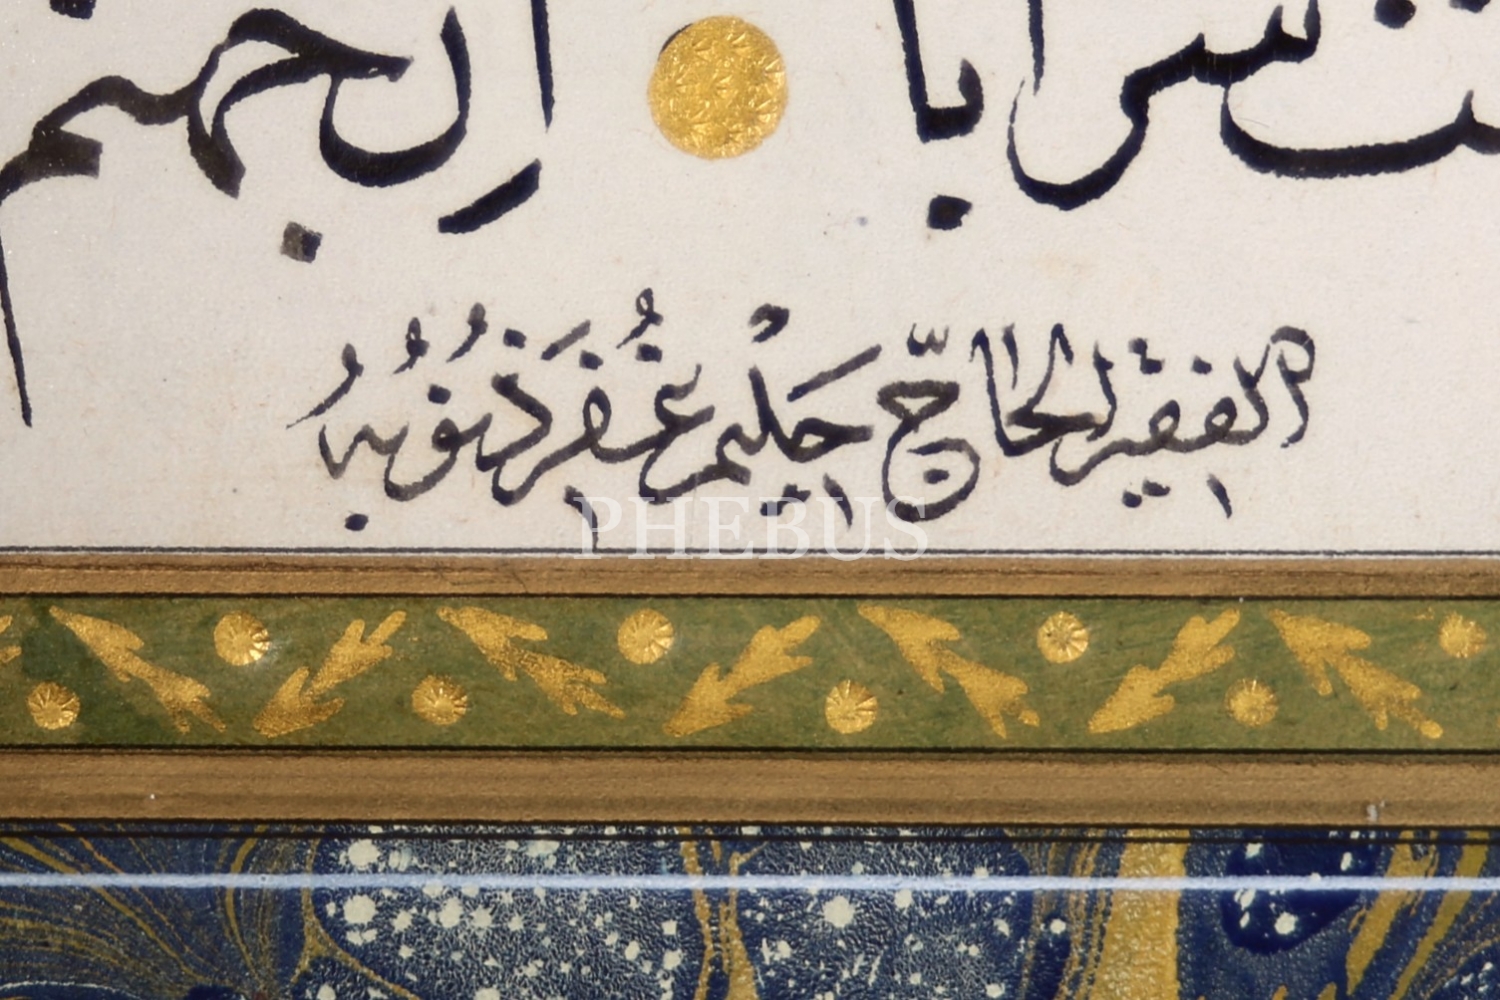 سرابا ان جهنم
الفقير الحاجّ حليم غُفِرَ ذنوبهُ
PHEBUS